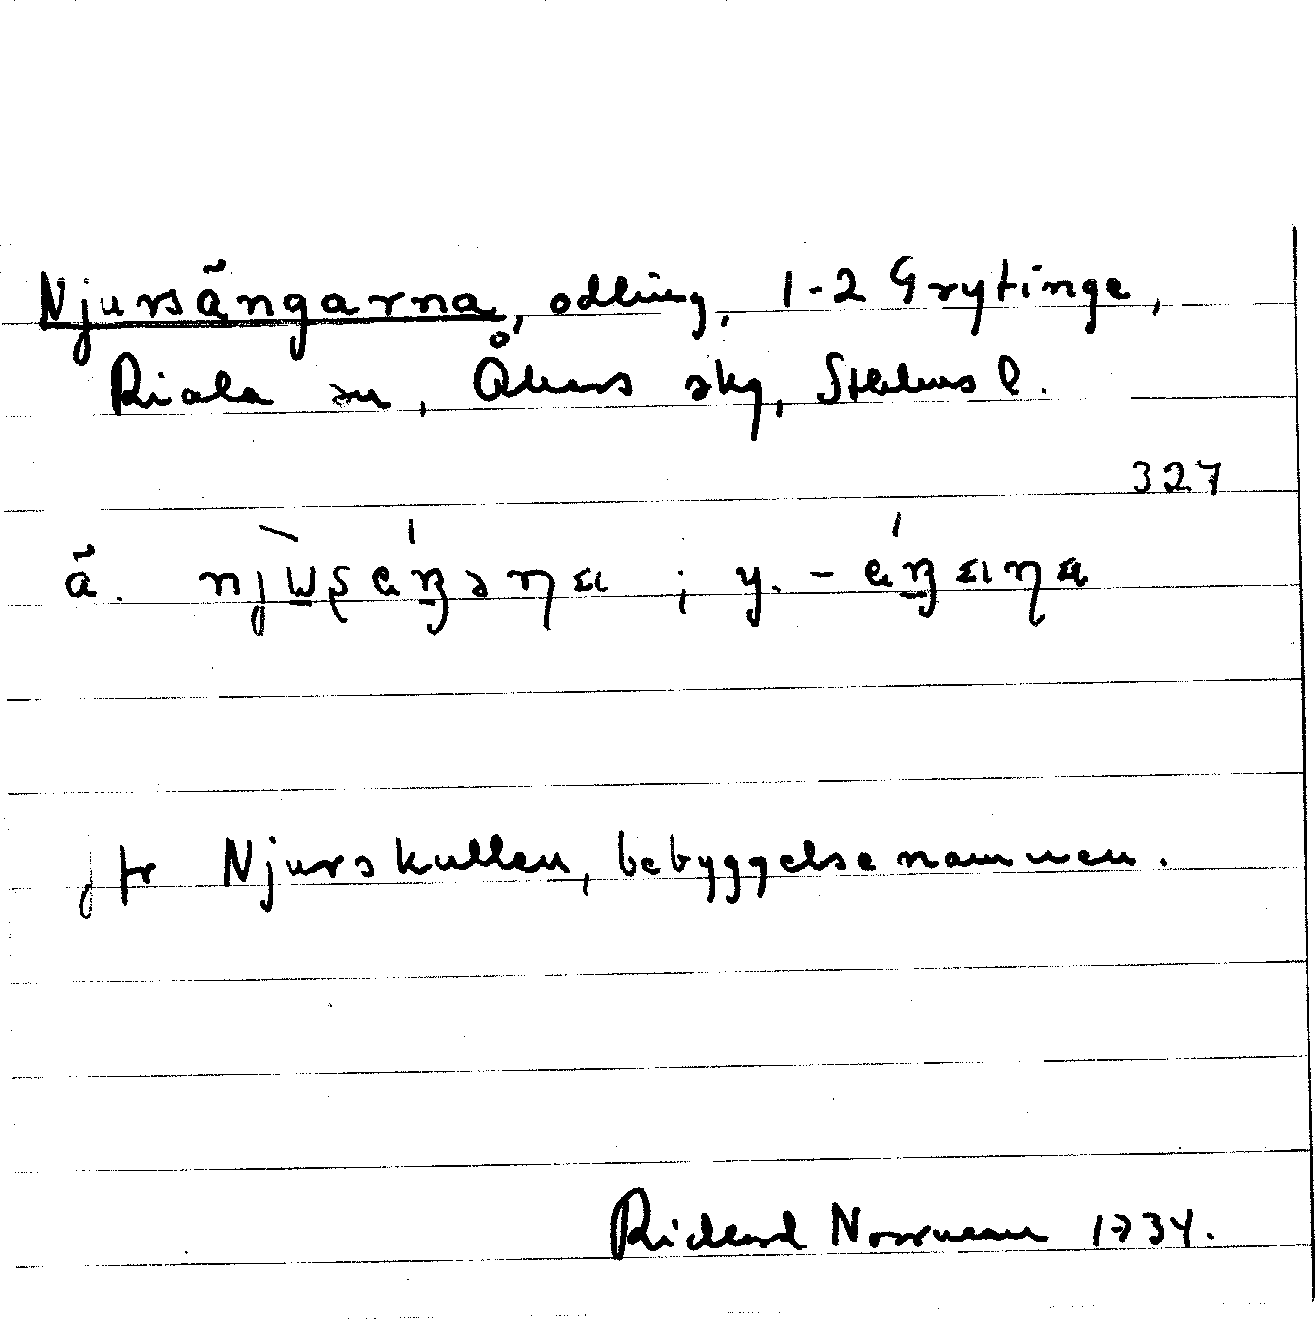 Njursängarna, odling, 1-2 Grytinge,
Riala sn, Åkers skg, Sthlms l.
327
ä. ; y. -
jfr Njurskullen, bebyggelsenamnen.
Richard Norrman 1934.